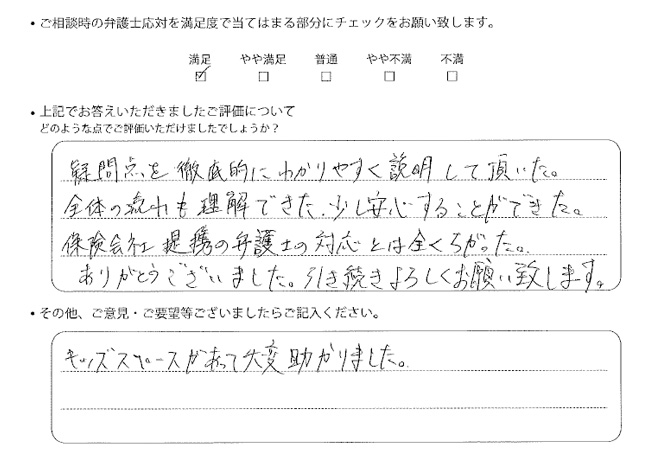 ・ご相談時の弁護士応対を満足度で当てはまる部分にチェックをお願い致します。
満足 やや満足 普通 やや不満 不満
☑ ☐ ☐ ☐ ☐
・上記でお答えいただきましたご評価について
どのような点でご評価いただけましたでしょうか？
疑問点を徹底的にわかりやすく説明して頂いた。
全体の流れも理解できた。少し安心することができた。
保険会社提携の弁護士の対応とは全くちがった。
ありがとうございました。引き続きよろしくお願い致します。
・その他、ご意見・ご要望等ございましたらご記入ください。
キッズスペースがあって大変助かりました。